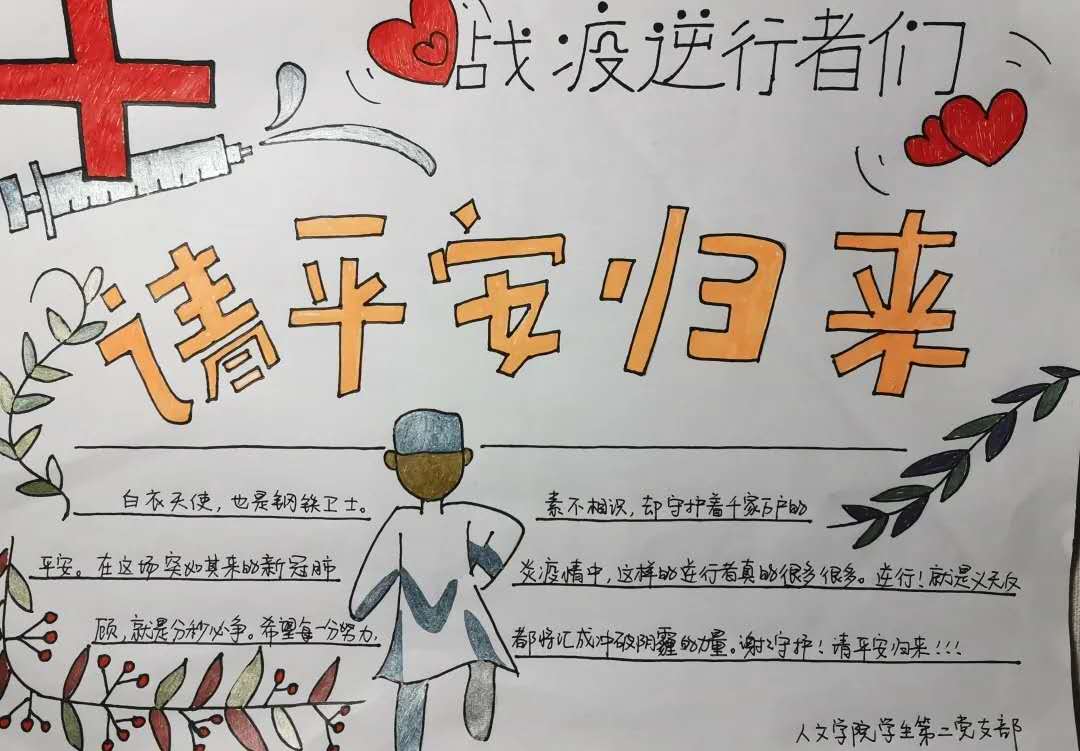 战疫逆行者们
请平安归来
白衣天使，也是钢铁卫士。素不相识，却守护着千家万户的
平安。在这场突如其来的新冠肺炎疫情中，这样的逆行者真的很多很多。逆行！就是义无反
顾，就是分秒必争。希望每一分努力，都将汇成冲破阴霾的力量。谢谢守护！请平安归来！！！
人文学院学生第二党支部